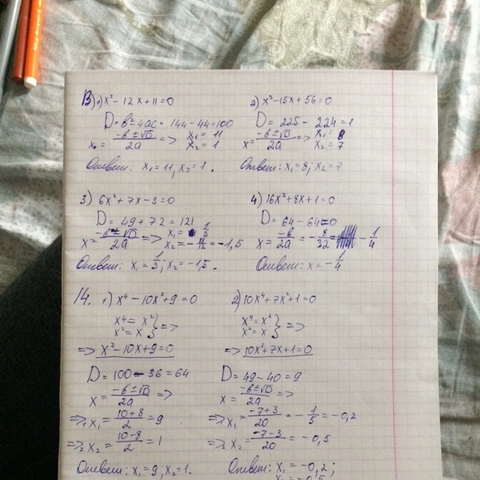 13) 1) x² - 12x + 11 = 0
D = b² - 4ac = 144 - 44 = 100
x = (-b ± √D)/2a => x₁ = 11
x₂ = 1
Ответ: x₁ = 11, x₂ = 1.
2) x² - 15x + 56 = 0
D = 225 - 224 = 1
x = (-b ± √D)/2a => x₁ = 8
x₂ = 7
Ответ: x₁ = 8; x₂ = 7
3) 6x² + 7x - 3 = 0
D = 49 + 72 = 121
x = (-b ± √D)/2a => x₁ = 1/3
x₂ = -18/12 = -1,5
Ответ: x₁ = 1/3; x₂ = -1,5.
4) 16x² + 8x + 1 = 0
D = 64 - 64 = 0
x = -b/2a = -8/32 = -1/4
Ответ: x = -1/4
14. 1) x⁴ - 10x² + 9 = 0
x⁴ = x²
x² = x } =>
=> x² - 10x + 9 = 0
D = 100 - 36 = 64
x = (-b ± √D)/2a =>
=> x₁ = (10+8)/2 = 9
=> x₂ = (10-8)/2 = 1
Ответ: x₁ = 9; x₂ = 1.
2) 10x⁴ + 7x² + 1 = 0
x⁴ = x²
x² = x } =>
=> 10x² + 7x + 1 = 0
D = 49 - 40 = 9
x = (-b ± √D)/2a =>
=> x₁ = (-7+3)/20 = -1/5 = -0,2
=> x₂ = (-7-3)/20 = -0,5
Ответ: x₁ = -0,2;